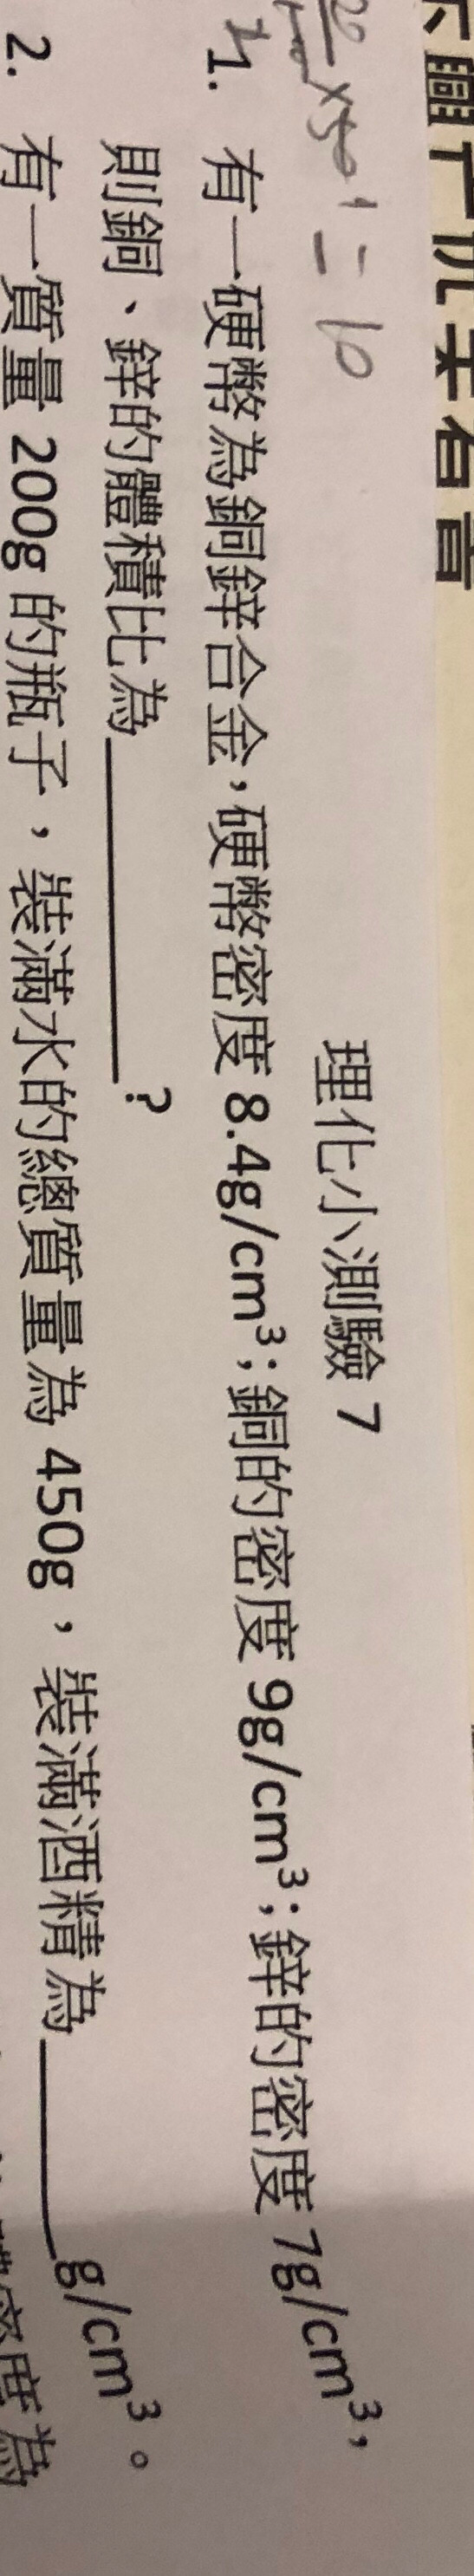 20
×50 = 10
理化小測驗 7
1. 有一硬幣為銅鋅合金，硬幣密度 8.4g/cm³；銅的密度 9g/cm³；鋅的密度 7g/cm³，
則銅、鋅的體積比為__________?
2. 有一質量 200g 的瓶子，裝滿水的總質量為 450g，裝滿酒精為__________g/cm³。
密度為